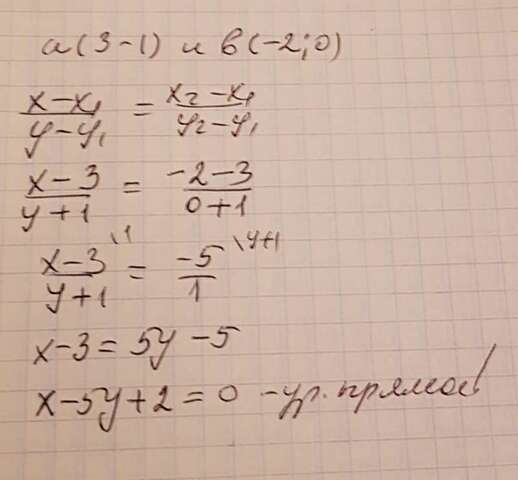 а(3-1) и в(-2;0)
x-x₁/y-y₁ = x₂-x₁/y₂-y₁
x-3/y+1 = -2-3/0+1
x-3\1/y+1 = -5\y+1/1
x-3=5y-5
x-5y+2=0 -ур. прямой